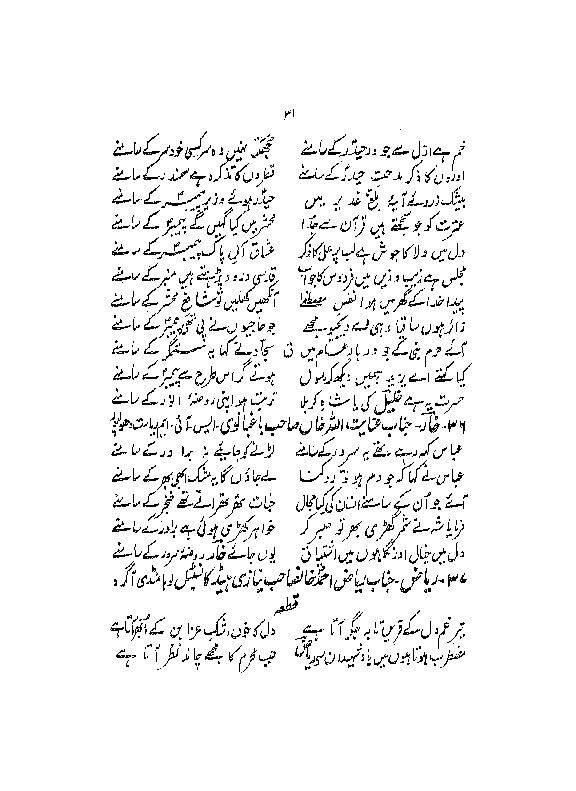 ۳۱
خم ہے ازل سے جو در حیدر کے سامنے جھکتا نہیں وہ سر کسی خودسر کے سامنے
اوروں کا ذکر مدحت حیدر کے سامنے قطروں کا تذکرہ ہے سمندر کے سامنے
بیشک ز روئے آیۂ بلغ غدیر میں حیدر ہوئے وزیر پیمبر کے سامنے
عترت کو جو سمجھتے ہیں قرآن سے جدا محشر میں کیا کہیں گے پیمبر کے سامنے
دل میں ولا کا جوش ہے لب پر علی کا ذکر عشاق آل پاک پیمبر کے سامنے
مجلس ہے زیب و زین میں فردوس کا جواب قدسی درود پڑھتے ہیں منبر کے سامنے
پیدا خدا کے گھر میں ہوا نفس مصطفیٰ آنکھیں کھلیں تو شافع محشر کے سامنے
زائر ہوں ساقیا وہی مے دیجیو مجھے جو حاجیوں نے پی تھی پیمبر کے سامنے
آئے حرم نبی کے جو دربار عام میں سجاد نے کہا یہ ستمگر کے سامنے
کیا کہتے اے یزید ہمیں دیکھ کر رسول ہوتے گر اس طرح سے پیمبر کے سامنے
حسرت یہ ہے خلیل کی یا شاہ کربلا تربت ہو اپنی روضۂ انور کے سامنے
۳۶۔ خار۔ جناب عنایت اللہ خاں صاحب
عباس کہہ رہے تھے یہ سرور کے سامنے لڑنے کو جائیے نہ برادر کے سامنے
عباس نے کہا کہ جو دم ہو تو روکنا لے جاؤں گا یہ مشک ابھی بھر کے سامنے
آئے جو ان کے سامنے انسان کی کیا مجال جنات تھرتھراتے تھے خنجر کے سامنے
فرمایا شہ نے شمر گھڑی بھر تو صبر کر خواہر کھڑی ہوئی ہے برادر کے سامنے
دل میں خیال اور نگاہوں میں اشتیاق یوں جائے خار روضۂ سرور کے سامنے
۳۷۔ ریاض۔ جناب ریاض احمد خانصاحب نیازی ہیڈ کانسٹبل لوہا منڈی آگرہ
قطعہ
تیر غم دل کے قریں تا بہ جگر آتا ہے دل کا خون اشک عزا بن کے
مضطرب ہوتا ہوں میں یاد شہیداں سے ریاض جب محرم کا مجھے چاند نظر آتا ہے